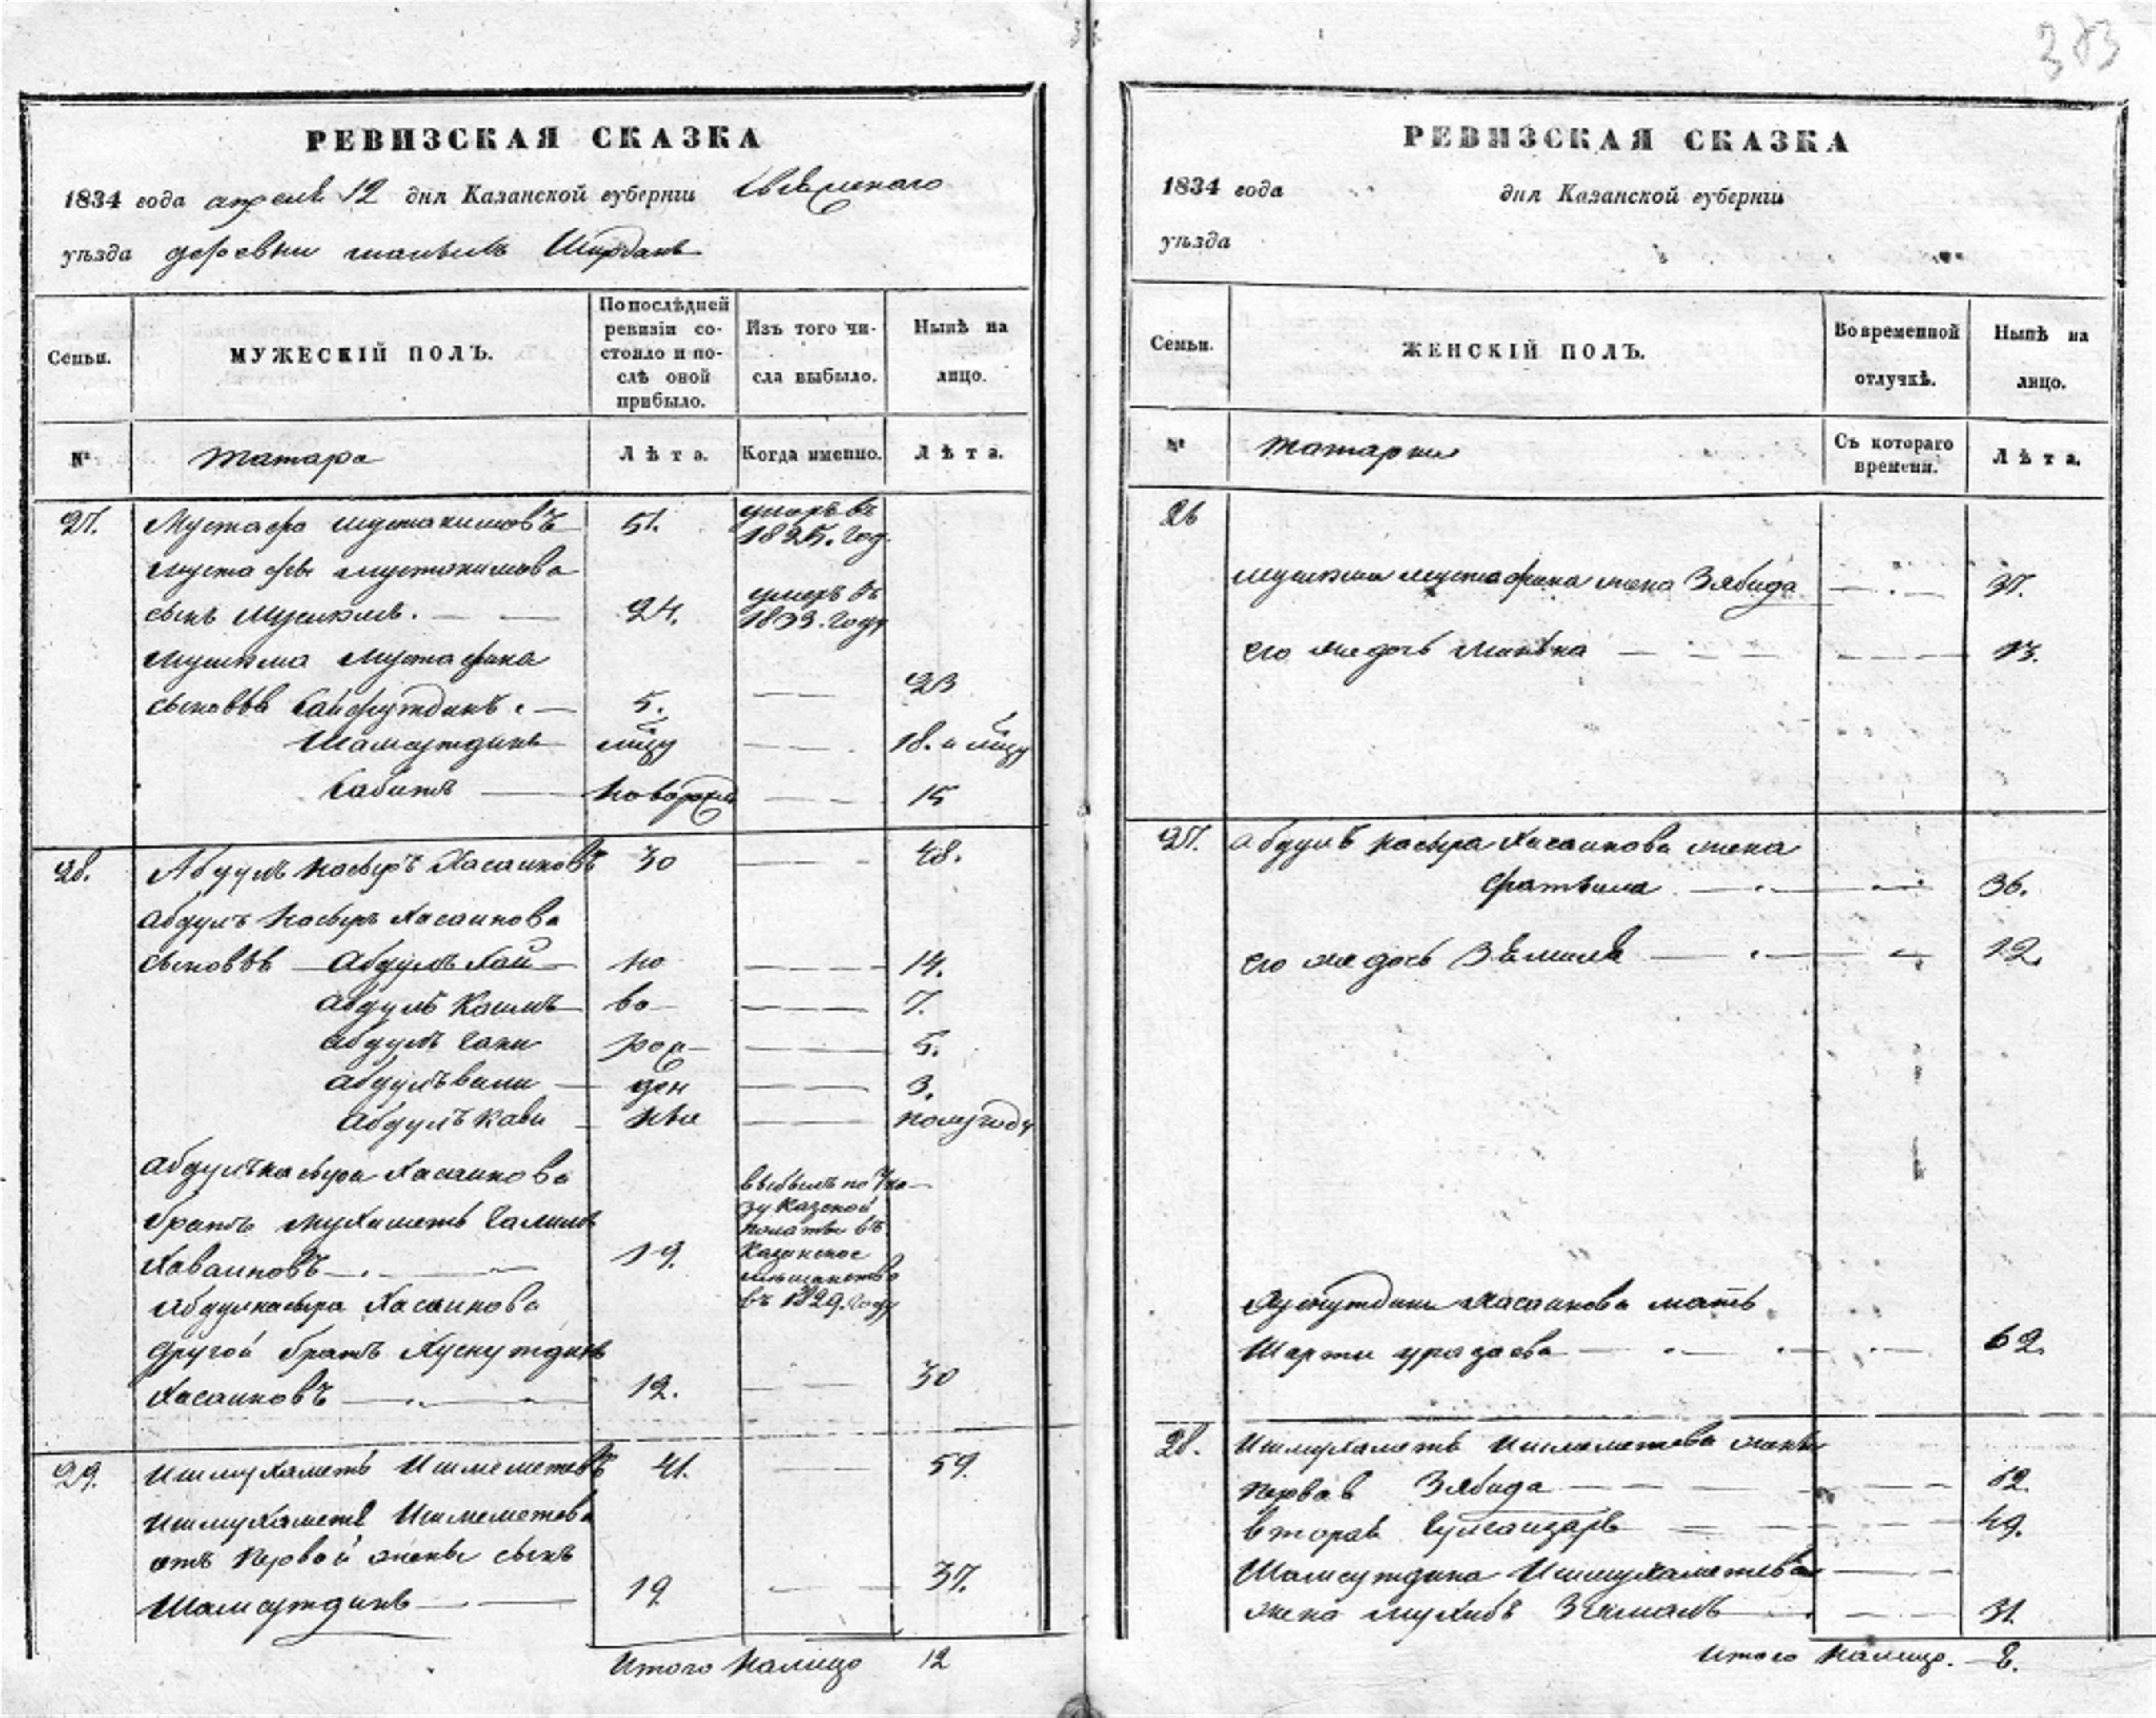 383
РЕВИЗСКАЯ СКАЗКА
1834 года апреля 12 дня Казанской губерніи Свіяжскаго
уѣзда деревни малыхъ Ширданъ
Семьи.
МУЖЕСКІЙ ПОЛЪ.
По послѣдней ревизіи состояло и послѣ оной прибыло.
Изъ того числа выбыло.
Нынѣ на лицо.
№
татара
Лѣта.
Когда именно.
Лѣта.
27. Мустафа мустакимовъ 51. умеръ въ 1825. год.
мустафы мустакимова
сынъ Мушкиль. 24. умеръ въ 1833. году
Мустафина
сыновья Сайфутдинъ 5. — 23
Шамсутдинъ — 18. и
Сабитъ новорож — 15
28. Абдулъ насыръ Хасановъ 30 — 48.
Абдулъ насыръ Хасанова
сыновья Абдулъ Хай но — 14.
Абдулъ Каимъ во — 7.
Абдулъ Гани рож — 5.
Абдулъ вали ден — 3.
Абдулъ кави ные — полугоду
Абдулнасыра Хасанова
братъ мухаметъ Галимъ
19. выбылъ по Указу Казеной палаты въ Казанское мещанство въ 1829. году
Абдулнасыра Хасанова
другой братъ Хуснутдинъ
Хасановъ 12. — 30
29. Ишмухаметъ Ишмеметевъ 41. — 59.
Ишмухаметя Ишмеметева
отъ первой жены сынъ
Шамсутдинъ 19 — 37.
Итого налицо 12
РЕВИЗСКАЯ СКАЗКА
1834 года дня Казанской губерніи
уѣзда
Семьи.
ЖЕНСКІЙ ПОЛЪ.
Во временной отлучкѣ.
Нынѣ на лицо.
№
татарки
Съ котораго времени.
Лѣта.
26
Мустафина жена Зябида — 37.
его же дочь — 13.
27. Абдулъ насыра Хасанова жена
Фатыма — 36.
его же дочь — 12.
Хуснутдина Хасанова мать
уразаева — 62.
28. Ишмухаметя Ишмеметева жены
первая Зябида — 52.
вторая — 49.
Шамсутдина Ишмухаметева
жена — 31.
Итого налицо. 8.